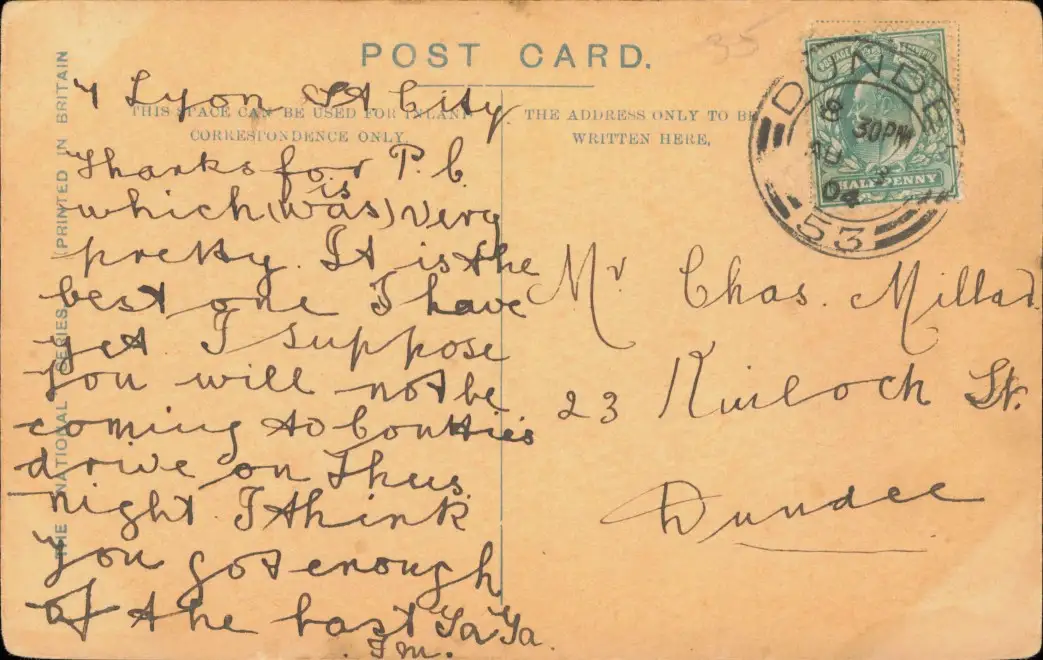 POST CARD.
THIS SPACE CAN BE USED FOR INLAND
CORRESPONDENCE ONLY.
THE ADDRESS ONLY TO BE
WRITTEN HERE,
THE NATIONAL SERIES
(PRINTED IN BRITAIN
35
DUNDEE
6 30PM
AU 3
04
53
HALFPENNY
4 Lyon St City
Thanks for P.C.
is
which (was) very
pretty. It is the
best one I have
yet. I suppose
you will not be
coming to Coutties
drive on Thus.
night I think
you got enough
of the last Ta Ta.
J m.
Mr Chas. Millar
23 Kinloch St.
Dundee